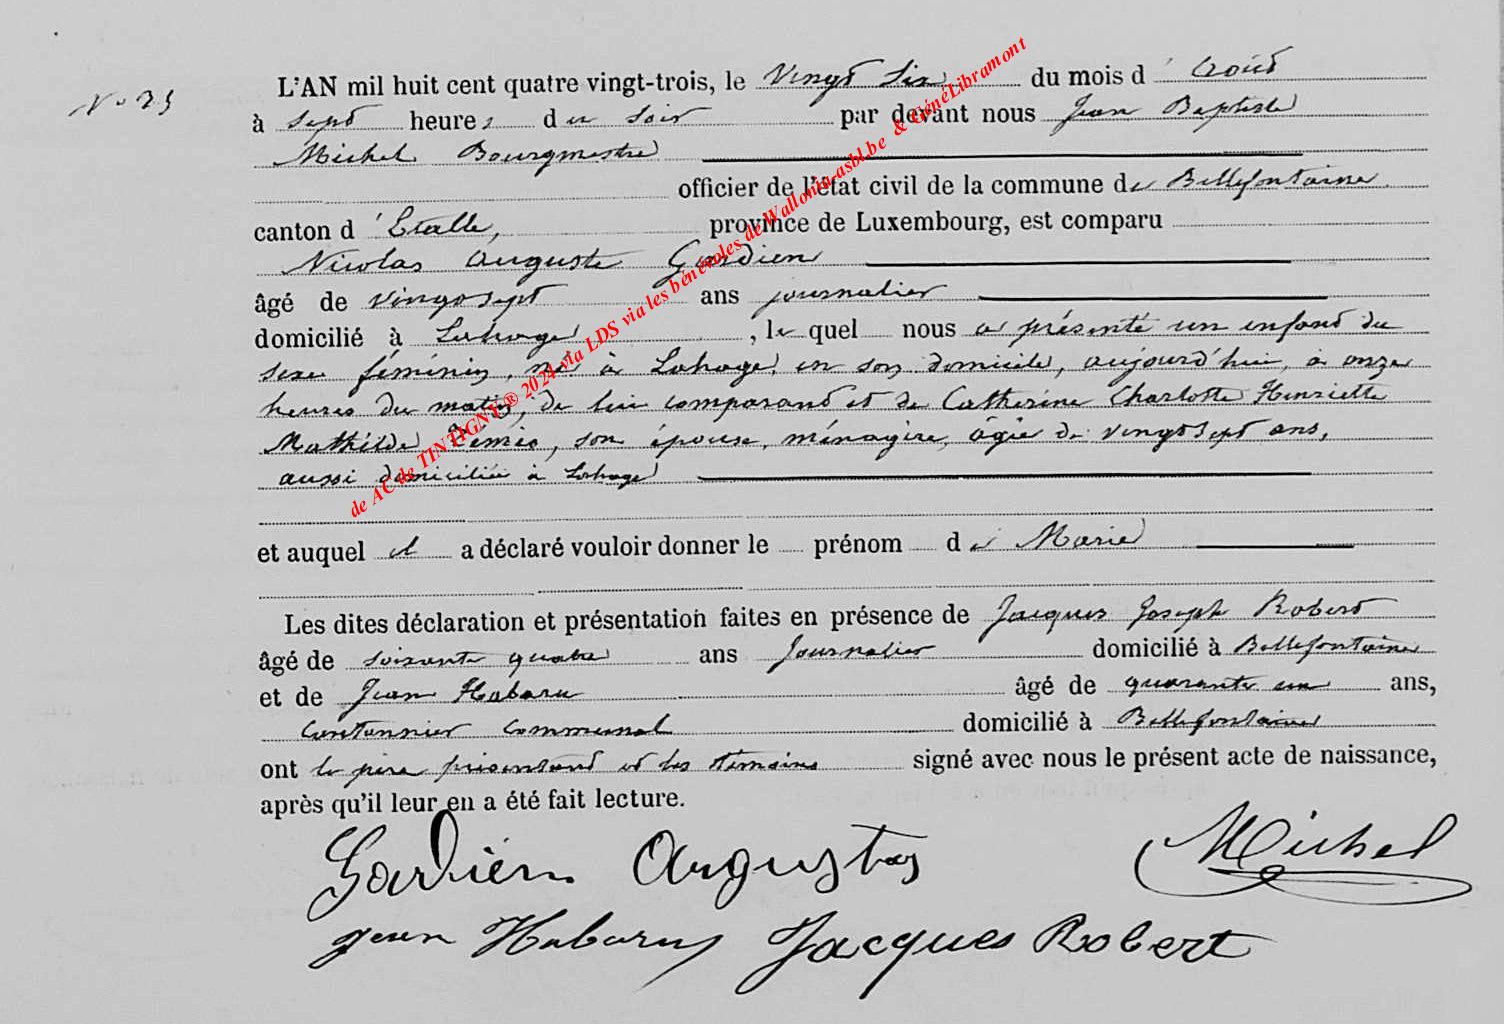 N° 25
L'AN mil huit cent quatre vingt-trois, le Vingt Six du mois d'Août
à sept heures du soir par devant nous Jean Baptiste
Michel Bourgmestre
officier de l'état civil de la commune de Bellefontaine
canton d'Etalle, province de Luxembourg, est comparu
Nicolas Auguste Gardien
âgé de vingt sept ans journalier
domicilié à Lahage, le quel nous a présenté un enfant du
sexe féminin, né à Lahage, en son domicile, aujourd'hui, à onze
heures du matin, de lui comparant et de Catherine Charlotte Henriette
Mathilde, son épouse, ménagère, âgée de vingt sept ans,
aussi domiciliée à Lahage
et auquel il a déclaré vouloir donner le prénom de Marie
Les dites déclaration et présentation faites en présence de Jacques Joseph Robert
âgé de soixante quatre ans Journalier domicilié à Bellefontaine
et de Jean Habaru âgé de quarante un ans,
Cantonnier Communal domicilié à Bellefontaine
ont le père présentant et les témoins signé avec nous le présent acte de naissance,
après qu'il leur en a été fait lecture.
Gardien Auguste Michel
jean Habaru Jacques Robert
de AC de TINTIGNY ® 2024 via LDS via les bénévoles de Wallonia-asbl.be & GénéLibramont